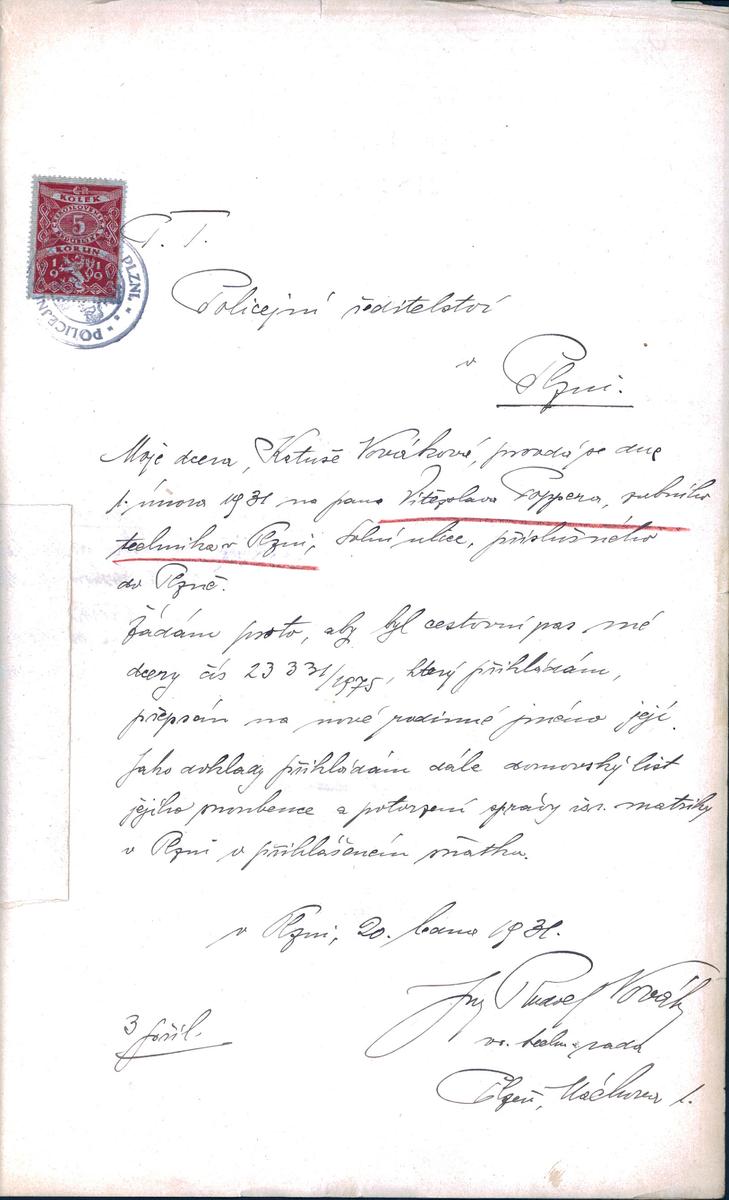 KOLEK
5
KORUN
19 19
POLICEJNÍ
PLZNI.
P. T.
Policejní ředitelství
v
Plzni.
Moje dcera, Katuše Nováková, provdá se dne
1. února 1931 na pana Vítězslava Poppera, zubního
technika v Plzni, Solní ulice, příslušného
do Plzně.
Žádám proto, aby byl cestovní pas mé
dcery čís 23 331/1975, který přikládám,
přepsán na nové rodinné jméno její.
Jako doklady přikládám dále domovský list
jejího snoubence a potvrzení správy isr. matriky
v Plzni o přihlášeném sňatku.
v Plzni, 20. ledna 1931.
3 příl.
Ing Rudolf Novák
vr. techn. rada
Plzeň, Máchova 1.